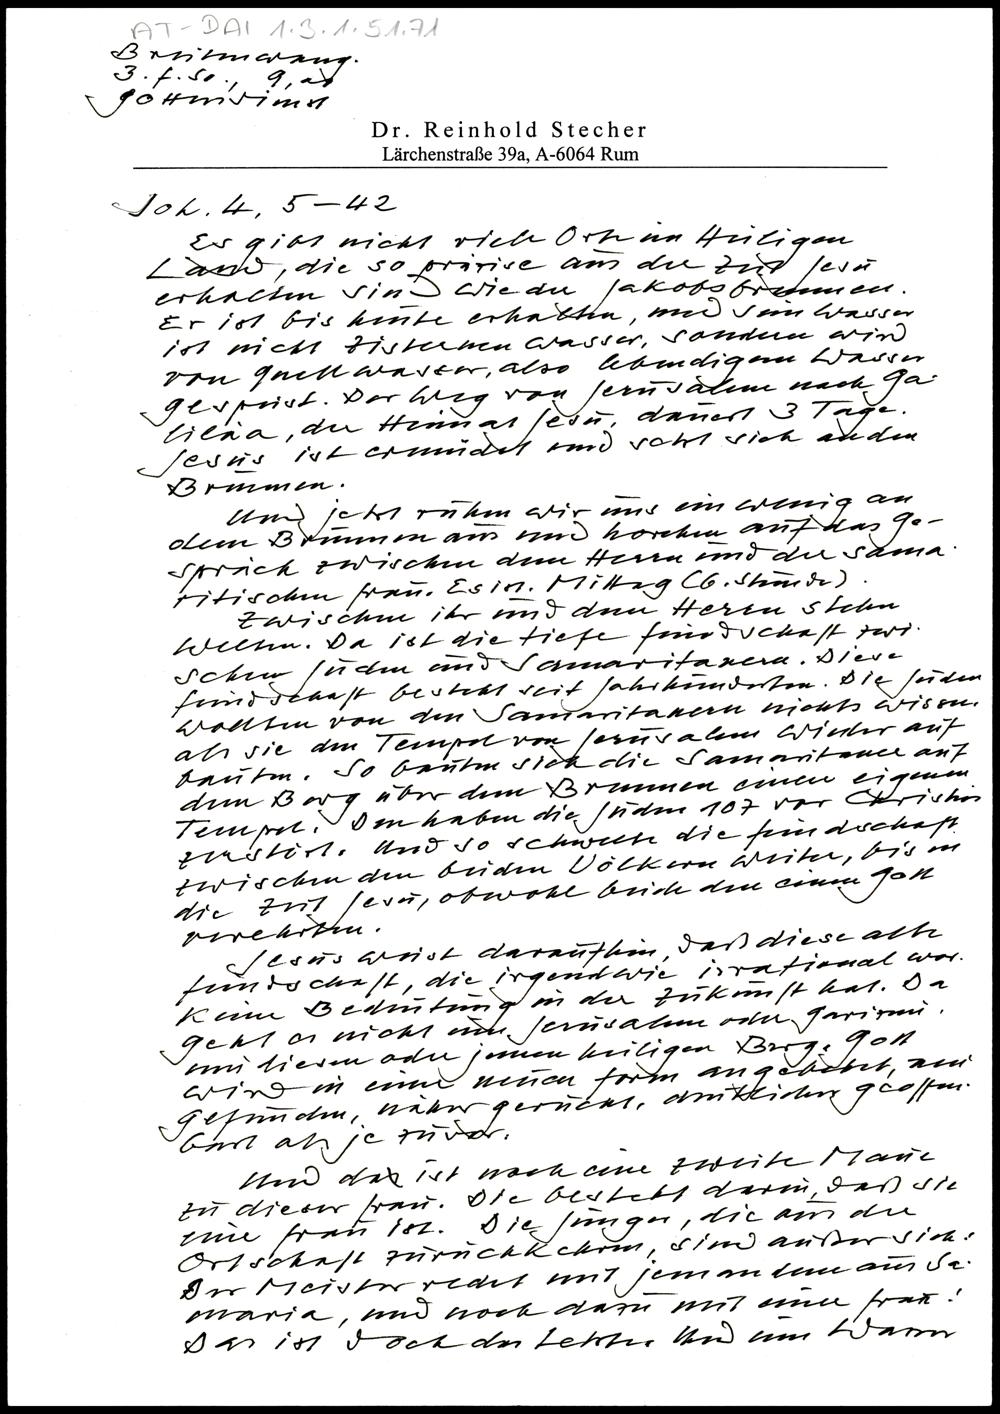 AT-DAI 1.3.1.51.71
Breitenwang.
3. f. So., 9,00
Gottesdienst
Dr. Reinhold Stecher
Lärchenstraße 39a, A-6064 Rum
Joh. 4, 5–42
Es gibt nicht viele Orte im Heiligen
Land, die so präzise aus der Zeit Jesu
erhalten sind wie der Jakobsbrunnen.
Er ist bis heute erhalten, und sein Wasser
ist nicht Zisternenwasser, sondern wird
von Quellwasser, also lebendigem Wasser
gespeist. Der Weg von Jerusalem nach Ga-
liläa, der Heimat Jesu, dauert 3 Tage.
Jesus ist ermüdet und setzt sich an den
Brunnen.
Und jetzt ruhen wir uns ein wenig an
dem Brunnen aus und horchen auf das Ge-
spräch zwischen dem Herrn und der sama-
ritischen Frau. Es ist Mittag (6. Stunde).
Zwischen ihr und dem Herrn stehn
Welten. Da ist die tiefe Feindschaft zwi-
schen Juden und Samaritanern. Diese
Feindschaft besteht seit Jahrhunderten. Die Juden
wollten von den Samaritanern nichts wissen,
als sie den Tempel von Jerusalem wieder auf
bauten. So bauten sich die Samaritaner auf
dem Berg über dem Brunnen einen eigenen
Tempel. Den haben die Juden 107 vor Christus
zerstört. Und so schwelte die Feindschaft
zwischen den beiden Völkern weiter, bis in
die Zeit Jesu, obwohl beide den einen Gott
verehrten.
Jesus weist daraufhin, daß diese alte
Feindschaft, die irgendwie irrational war.
Keine Bedeutung in der Zukunft hat. Da
geht es nicht um Jerusalem oder Garizim.
um diesen oder jenen heiligen Berg. Gott
wird in einer neuen Form angebetet, neu
gefunden, näher gerückt, deutlicher geoffen-
bart als je zuvor.
Und da ist noch eine zweite Mauer
zu dieser Frau. Die besteht darin, daß sie
eine Frau ist. Die Jünger, die aus der
Ortschaft zurückkehren, sind außer sich:
Der Meister redet mit jemandem aus Sa-
maria, und noch dazu mit einer Frau!
Das ist doch das Letzte. Und um Wasser